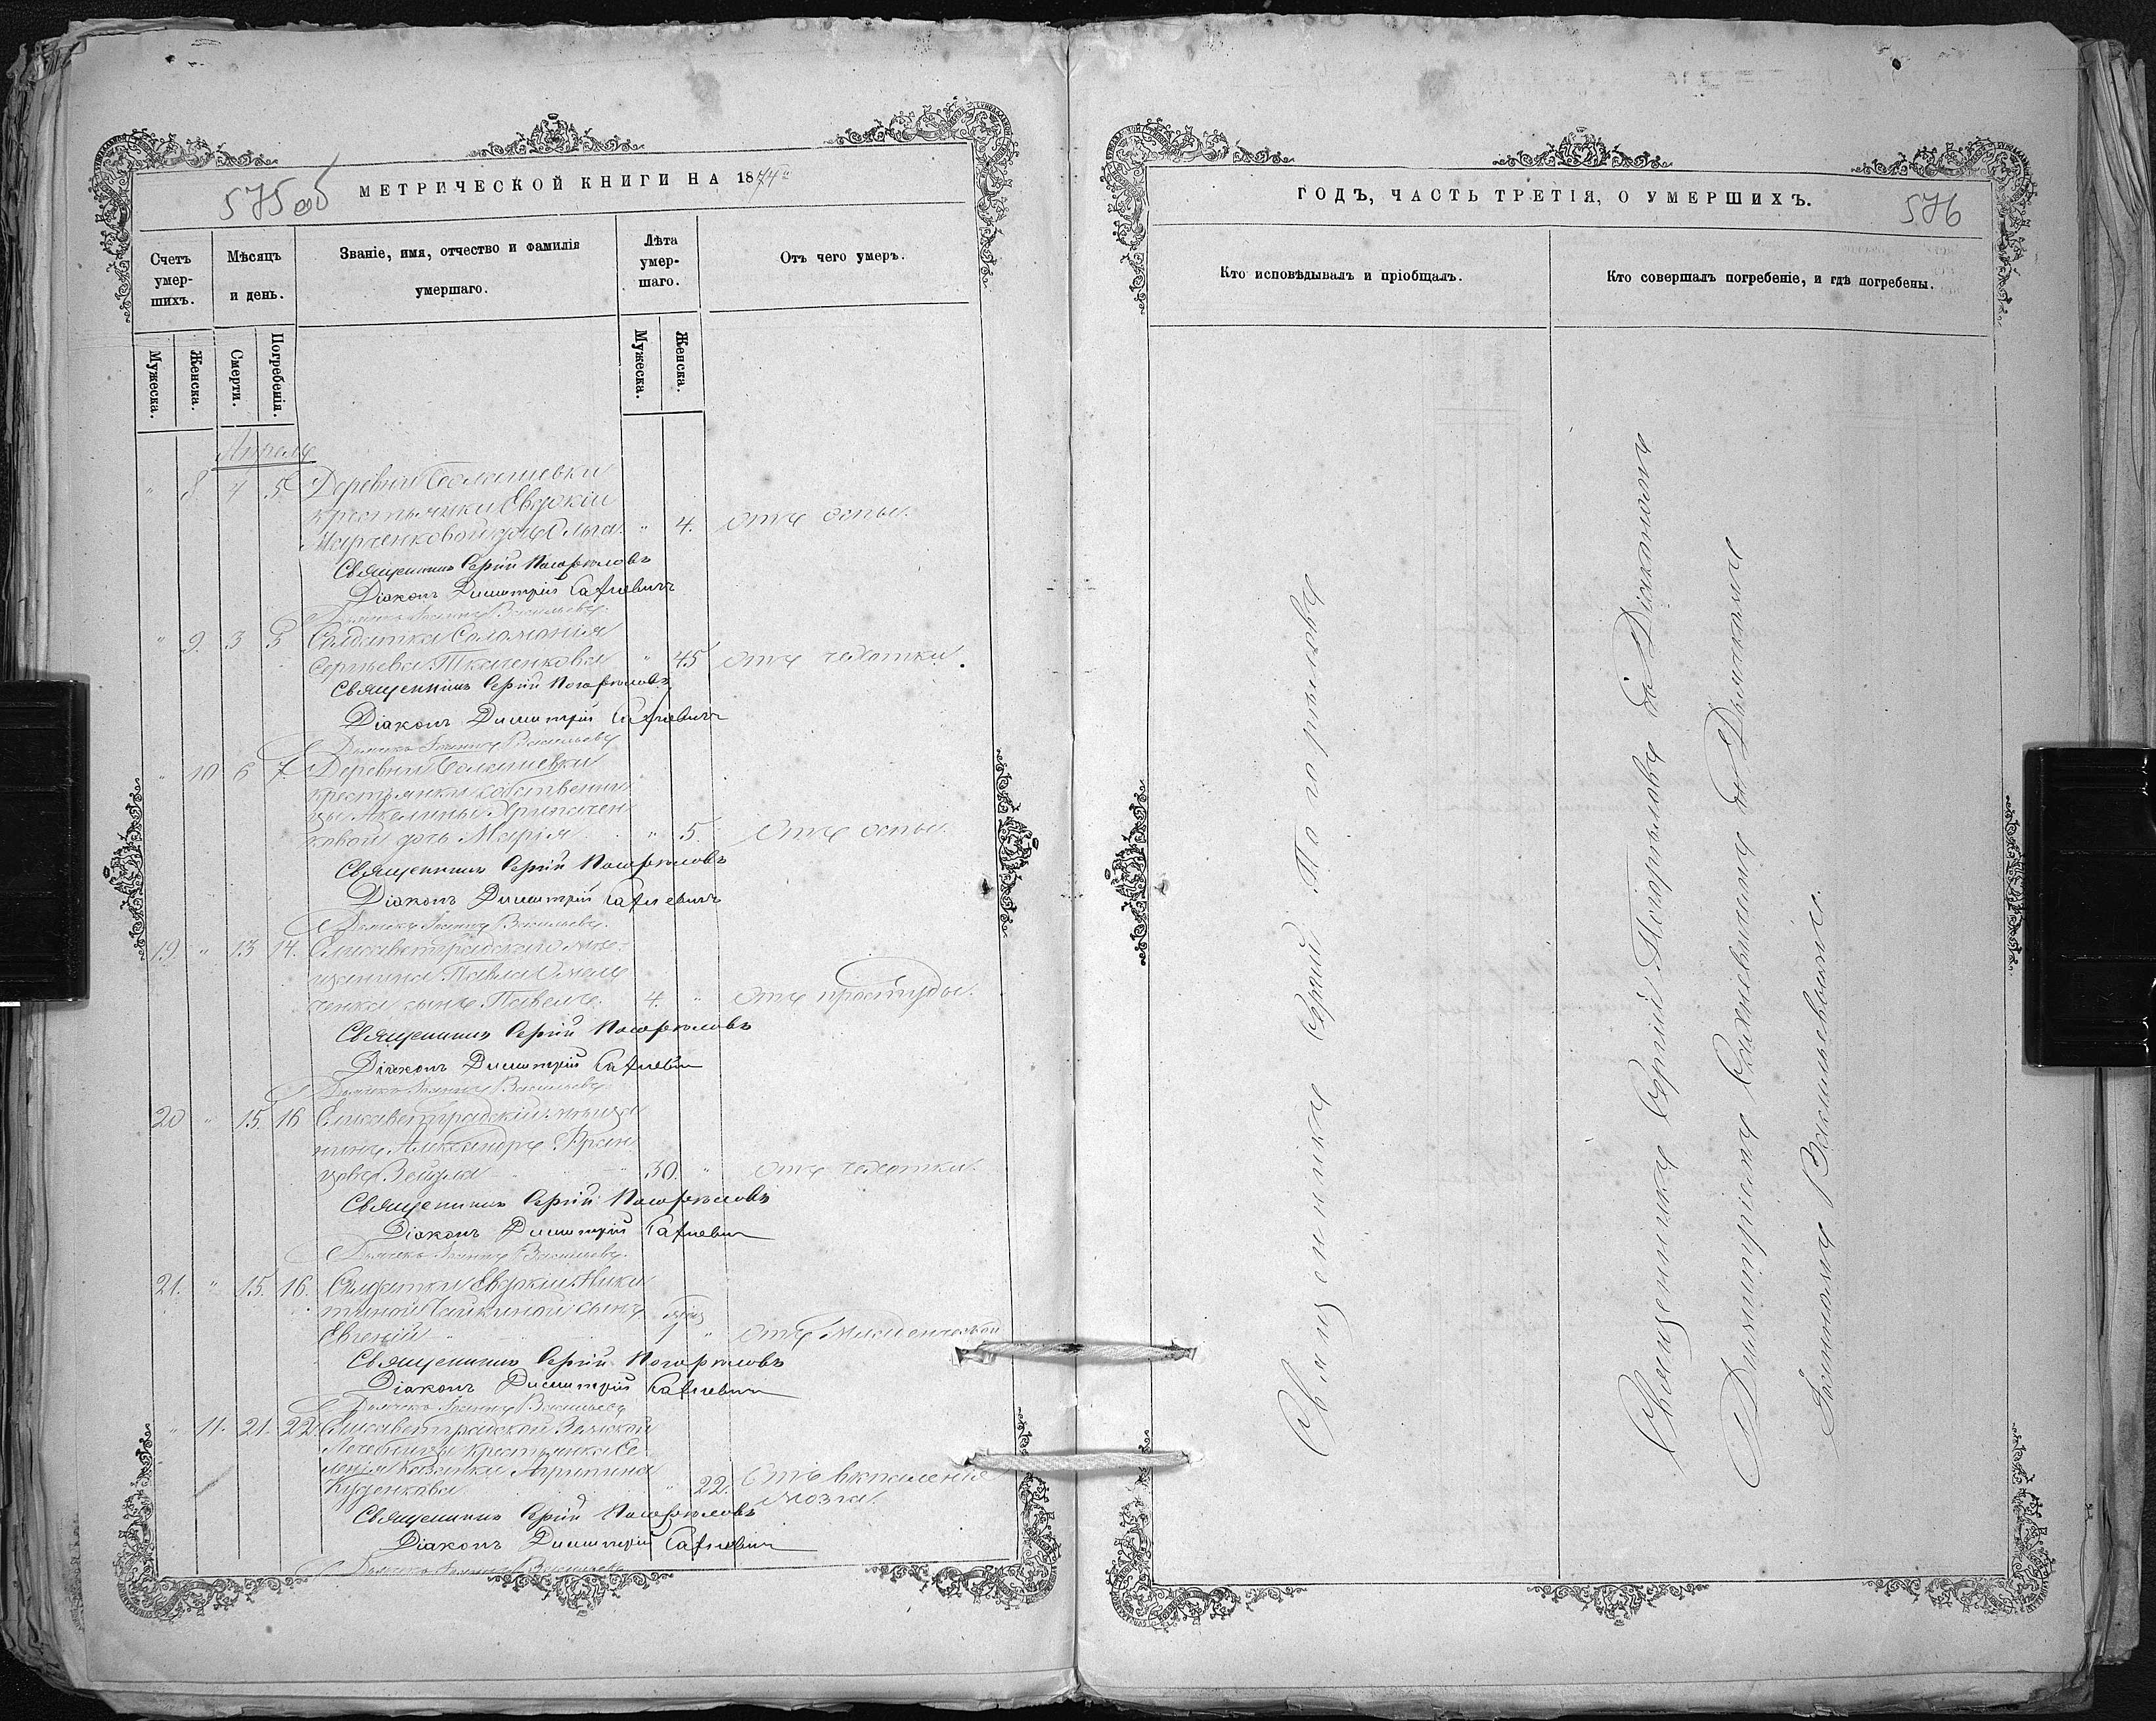 575 об
МЕТРИЧЕСКОЙ КНИГИ НА 1874 й
Счетъ умер-шихъ.
Мѣсяцъ и день.
Званіе, имя, отчество и фамилія умершаго.
Лѣта умер-шаго.
Отъ чего умеръ.
Мужеска.
Женска.
Смерти.
Погребенія.
Мужеска.
Женска.
Апрель
" 8 4 5 Деревни
крестьянки Евдокіи
Марченковой дочь Ольга " 4. отъ оспы.
Священникъ Сергій Погорѣловъ
Діаконъ Димитрій Сахневичъ
Дьячекъ Іоаннъ Васильевъ.
" 9. 3 5 Солдатка Соломонія
Сергѣева Ткаченкова " 45 отъ чахотки.
Священникъ Сергій Погорѣловъ
Діаконъ Димитрій Сахневичъ
Дьячекъ Іоаннъ Васильевъ
" 10 6 7. Деревни
крестьянки собственни
цы Акелины
ковой дочь Марія " 5. отъ оспы.
Священникъ Сергій Погорѣловъ
Діаконъ Димитрій Сахневичъ
Дьячекъ Іоаннъ Васильевъ.
19 " 13 14. Елисаветградскаго мѣ-
щанина Павла Омель
ченка сынъ Павелъ. 4. " отъ простуды.
Священникъ Сергій Погорѣловъ
Діаконъ Димитрій Сахневич
Дьячекъ Іоаннъ Васильевъ
20 " 15. 16 Елисаветградскій мѣща
нинъ Александръ Фран
цовъ 30. " отъ чахотки.
Священникъ Сергій Погорѣловъ
Діаконъ Димитрій Сахневич
Дьячекъ Іоаннъ Васильевъ.
21. " 15. 16. Солдатки Евдокіи Ники
тиной Чайкиной сынъ мѣсяц
Евгеній 1 " отъ младенческой
Священникъ Сергій Погорѣловъ
Діаконъ Димитрій Сахневич
Дьячекъ Іоаннъ Васильевъ
" 11. 21. 22 Елисаветградской Земской
Лечебницы крестьянка Се
ленія Казанки Агрипина
" 22. Отъ вспаленіе
мозга.
Священникъ Сергій Погорѣловъ
Діаконъ Димитрій Сахневич
Дьячекъ Іоаннъ Васильевъ
ГОДЪ, ЧАСТЬ ТРЕТІЯ, О УМЕРШИХЪ.
576
Кто исповѣдывалъ и пріобщалъ.
Кто совершалъ погребеніе, и гдѣ погребены.
Священникъ Сергій Погорѣловъ
Священникъ Сергій Погорѣловъ съ Діакономъ
Димитріемъ Сахневичемъ и Дьячкомъ
Іоанномъ Васильевымъ.